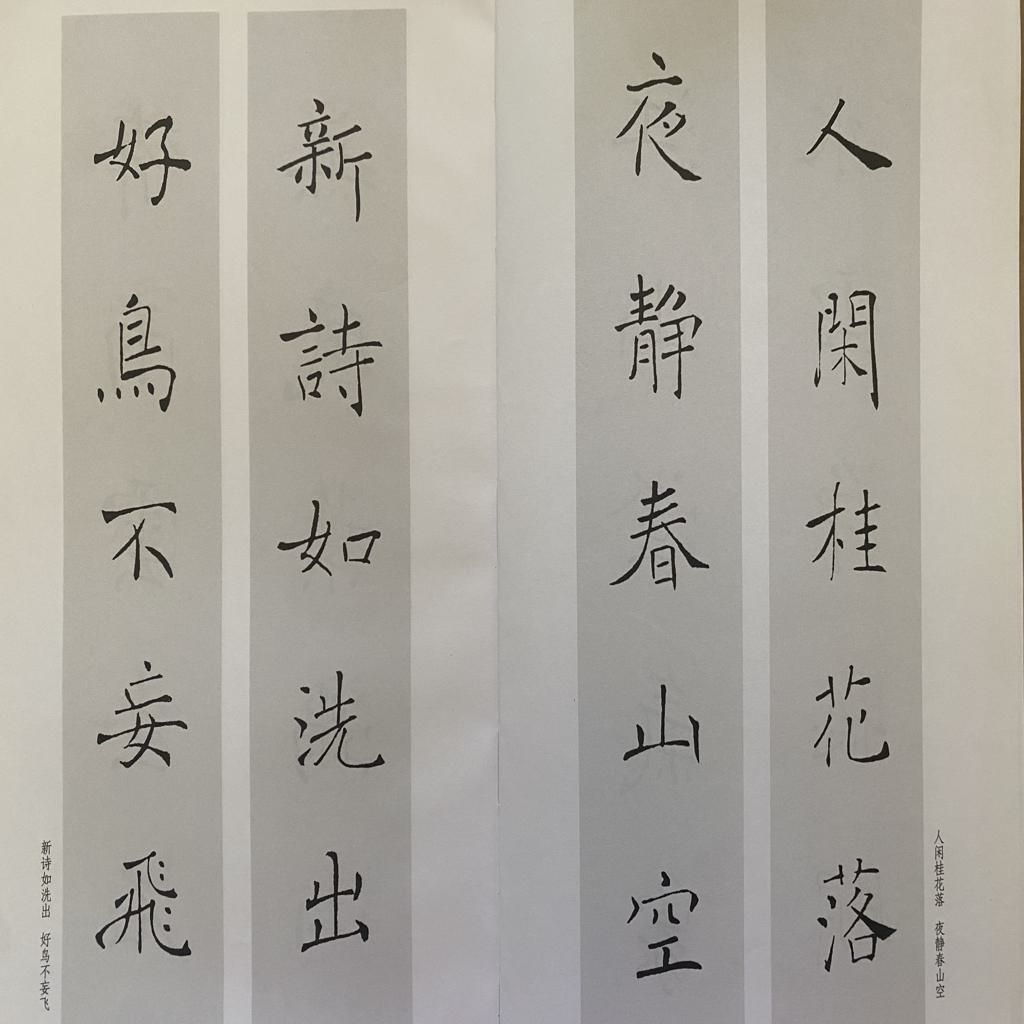 人閑桂花落
夜静春山空
人闲桂花落 夜静春山空
新詩如洗出
好鳥不妄飛
新诗如洗出 好鸟不妄飞